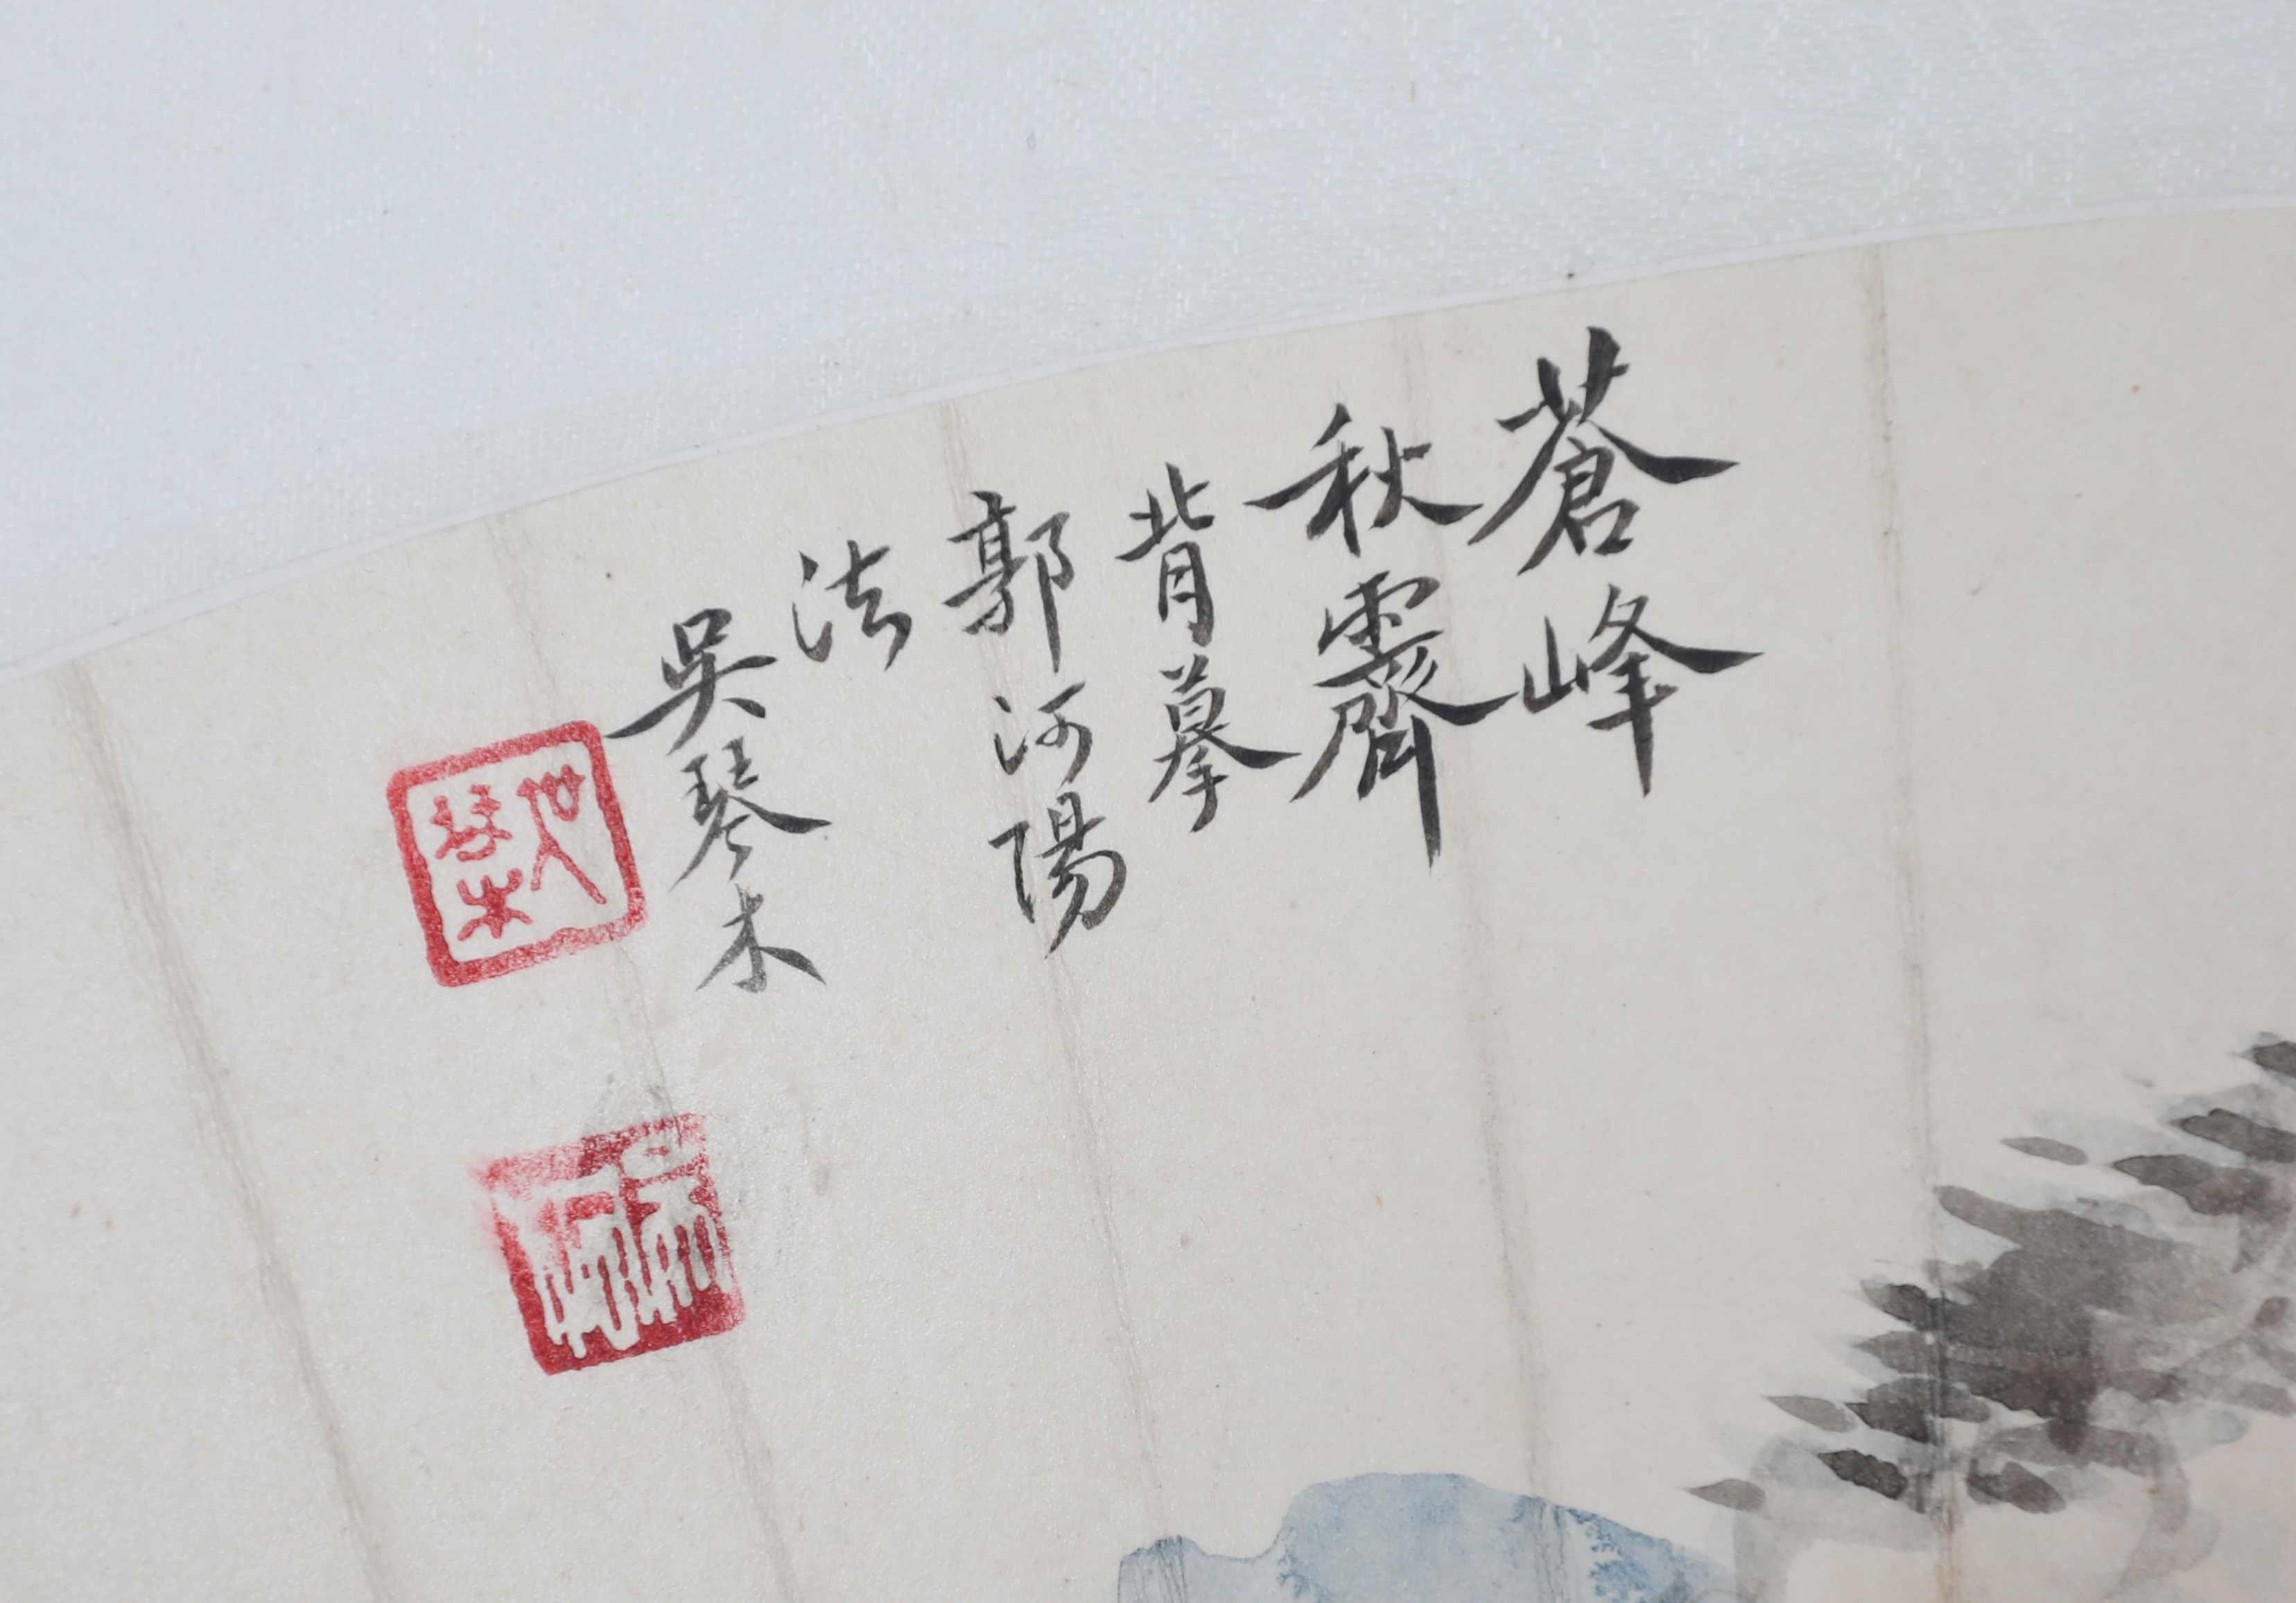 蒼峰
秋霽
背摹
郭河陽
法
吳琴木